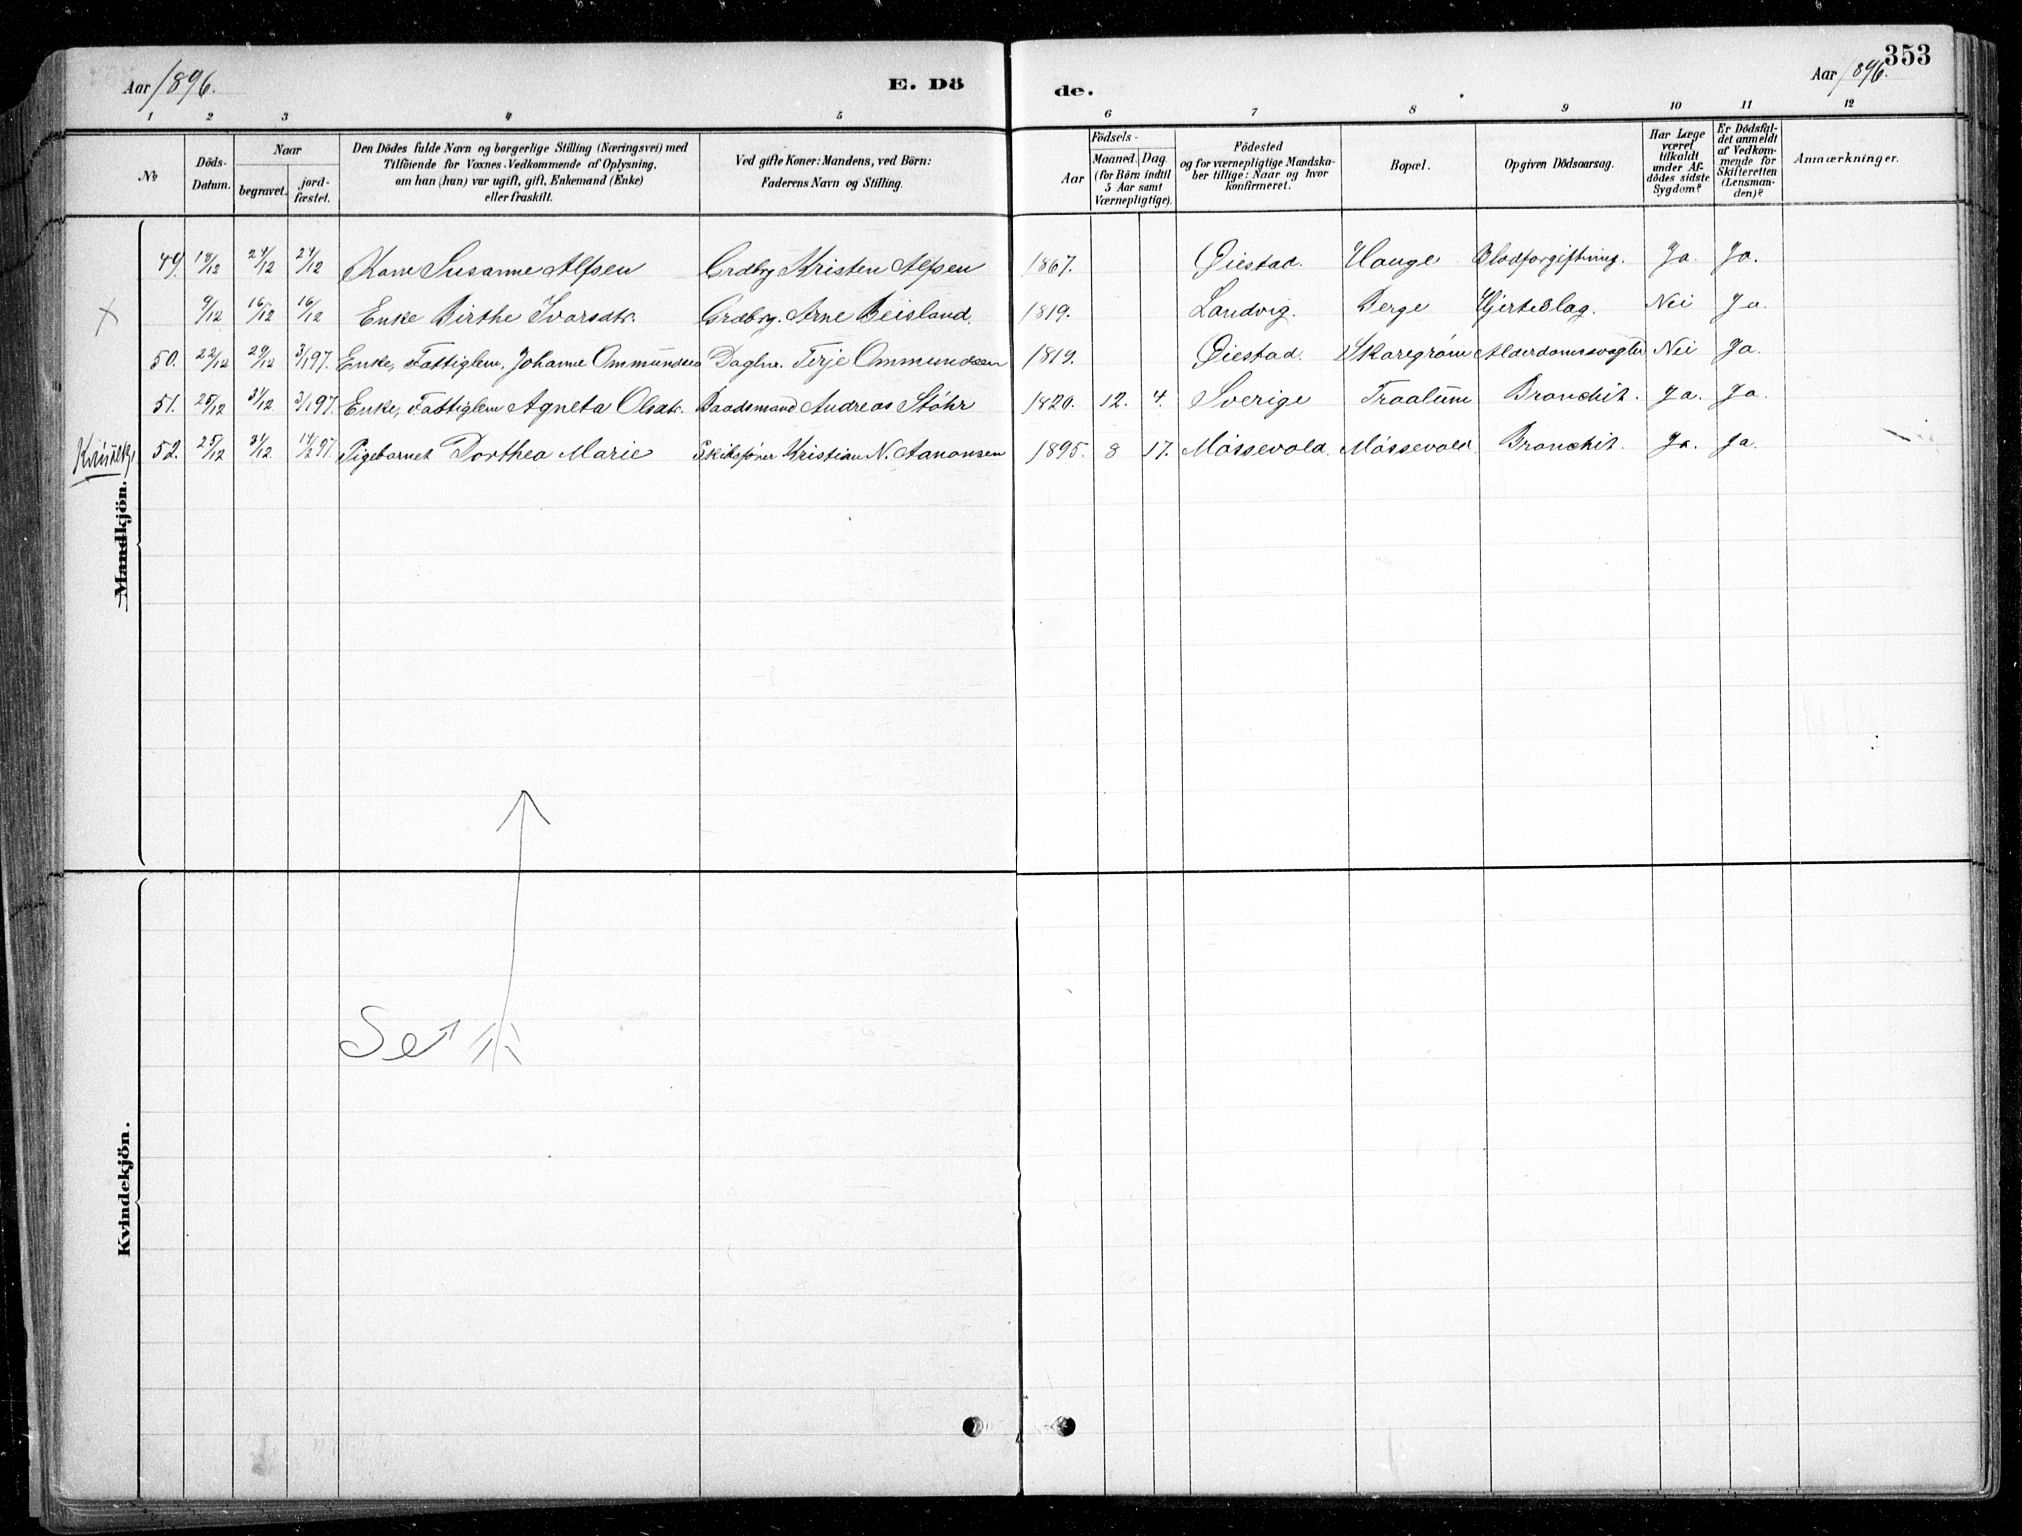 353
Aar 1896.
E. Dö
de.
Aar 1896.
1 2 3 4 5 6 7 8 9 10 11 12
No
Döds-Datum.
Naar
begravet.
jordfæstet.
Den Dödes fulde Navn og borgerlige Stilling (Næringsvei) med
Tilföiende for Voxnes Vedkommende af Oplysning,
om han (hun) var ugift, gift, Enkemand (Enke)
eller fraskilt.
Ved gifte Koner: Mandens, ved Börn:
Faderens Navn og Stilling.
Födsels-
Aar
Maaned. Dag
(for Börn indtil
5 Aar samt
Værnepligtige).
Födested
og for værnepligtige Mandska-
ber tillige: Naar og hvor
konfirmeret.
Bopæl.
Opgiven Dödsaarsag.
Har Læge
været
tilkaldt
under Af-
dödes sidste
Sygdom?
Er Dödsfal-
det anmeldt
af Vedkom-
mende for
Skifteretten
(Lensman-
den)?
Anmærkninger.
49. 18/12 24/12 24/12 Kone Susanne Alfsen Grdbrg Kristen Alfsen 1867. Øiestad. Hauge Blodforgiftning. Ja. Ja.
X 9/12 16/12 16/12 Enke Birthe Ivarsdtr. Grdbrg. Arne Beisland. 1819. Landvig. Berge Hjerteslag. Nei Ja.
50. 22/12 29/12 3/1 97. Enke, Fattiglem, Johanne Ommundsen Daglnr. Terje Ommundsen 1819. Øiestad. Skaregrøm Alderdomssvaghed Nei Ja.
51. 25/12 31/12 3/1 97. Enke, Fattiglem Agneta Olsdtr. Baadsmand Andreas Støhr 1820. 12. 4. Sverige Traalum Bronchit. Ja. Ja.
52. 25/12 31/12 14/2 97. Pigebarnet Dorthea Marie Skibsfører Kristian N. Aanonsen 1895. 8 17. Møssevold Møssevold. Bronchit. Ja. Ja.
Mandkjön.
Se
Kvindekjön.